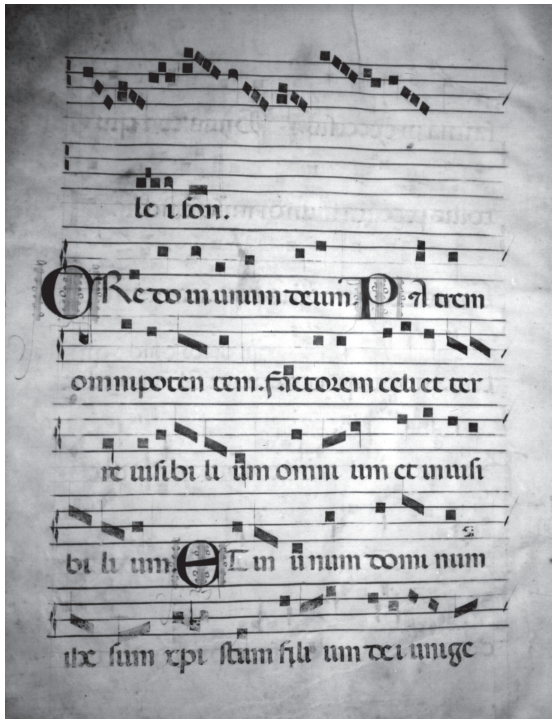 le i son.
CRe do in unum deum PA trem
omnipoten tem. factorem celi et ter
re uisibi li um omni um et inuisi
bi li um. ET in u num domi num
ihe sum xpi stum fili um de i unige